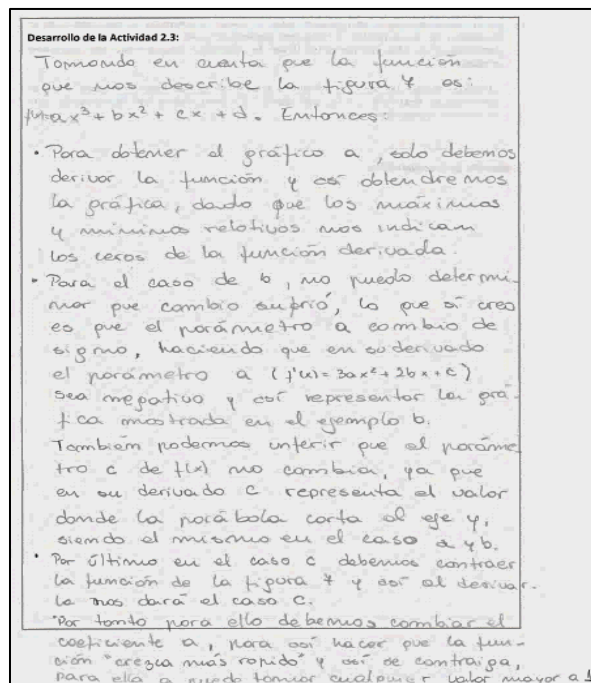 Desarrollo de la Actividad 2.3:
Tomando en cuenta que la función
que nos describe la figura 7 es:
f(x)=ax³+bx²+cx+d. Entonces:
• Para obtener el gráfico a, solo debemos
derivar la función y así obtendremos
la gráfica, dado que los máximos
y mínimos relativos nos indican
los ceros de la función derivada.
• Para el caso de b, no puedo determi-
nar que cambio sufrió, lo que si creo
es que el parámetro a cambio de
signo, haciendo que en su derivada
el parámetro a (f'(x)=3ax²+2bx+c)
sea negativo y así representar la grá-
fica mostrada en el ejemplo b.
También podemos inferir que el paráme
tro c de f(x) no cambia, ya que
en su derivada c representa el valor
donde la parábola corta al eje y,
siendo el mismo en el caso a y b.
• Por último en el caso c debemos contraer
la función de la figura 7 y así al derivar-
la nos dará el caso C.
Por tanto para ello debemos cambiar el
coeficiente a, para así hacer que la fun-
ción "crezca más rapido" y así se contraiga,
para ello a puede tomar cualquier valor mayor a 1